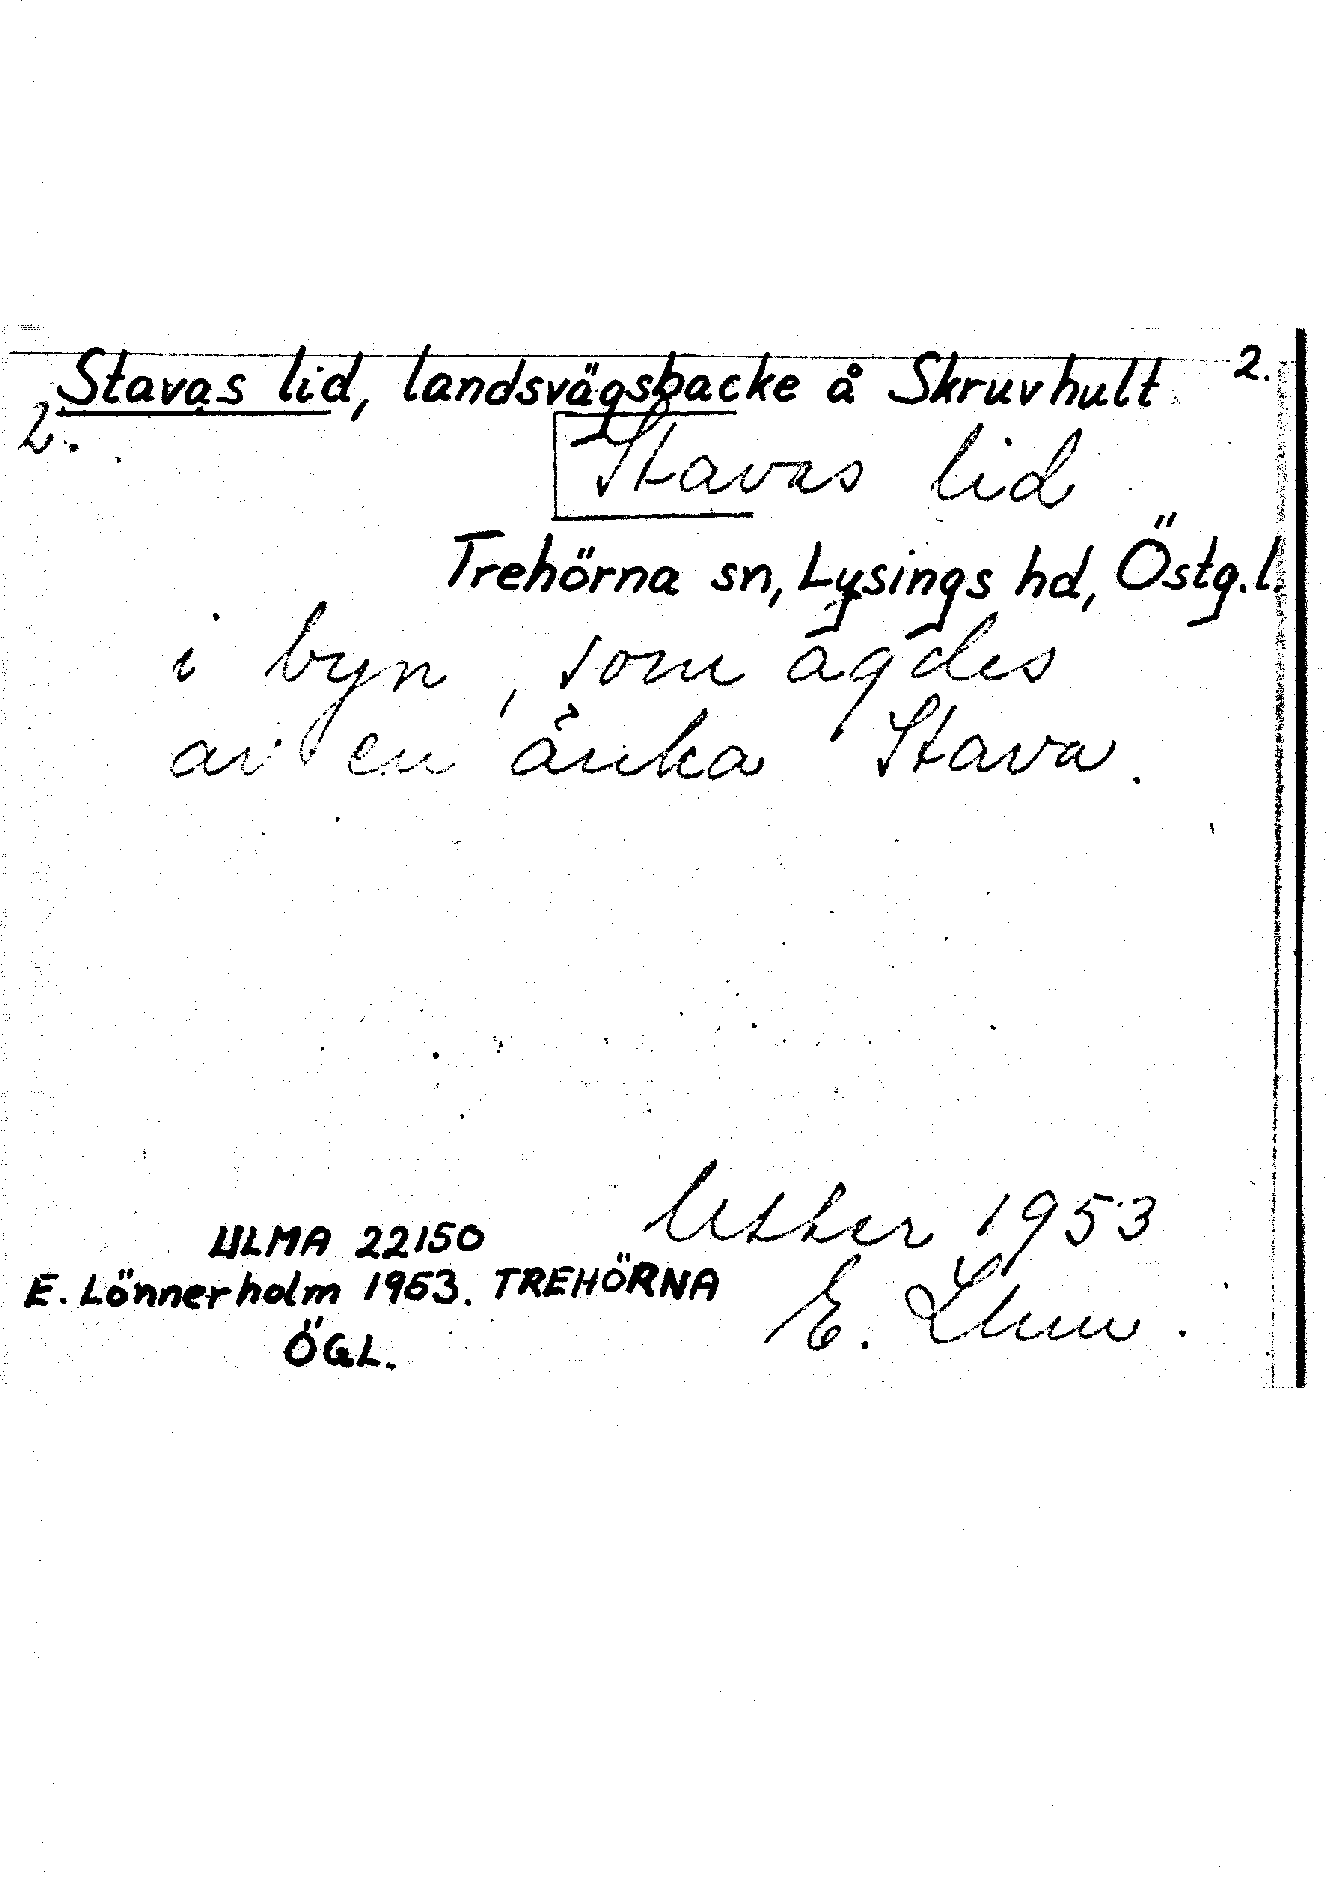 Stavas lid, landsvägsbacke å Skruvhult 2.
2.
Stavas lid
Trehörna sn, Lysings hd, Östg.l.
i byn, som ägdes
av en änka Stava.
1953
ULMA 22150
E. Lönnerholm 1953. TREHÖRNA
ÖGL.
E.